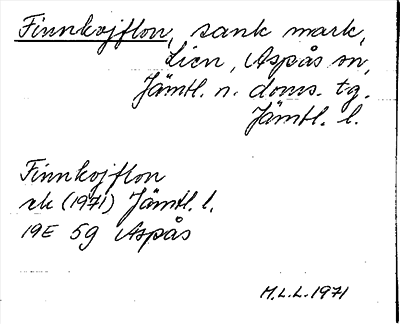 Finnkojflon, sank mark,
Lien, Aspås sn,
Jämtl. n. doms. tg.
Jämtl. l.
Finnkojflon
ek (1971) Jämtl. l.
19E 5g Aspås
M.L.L. 1971